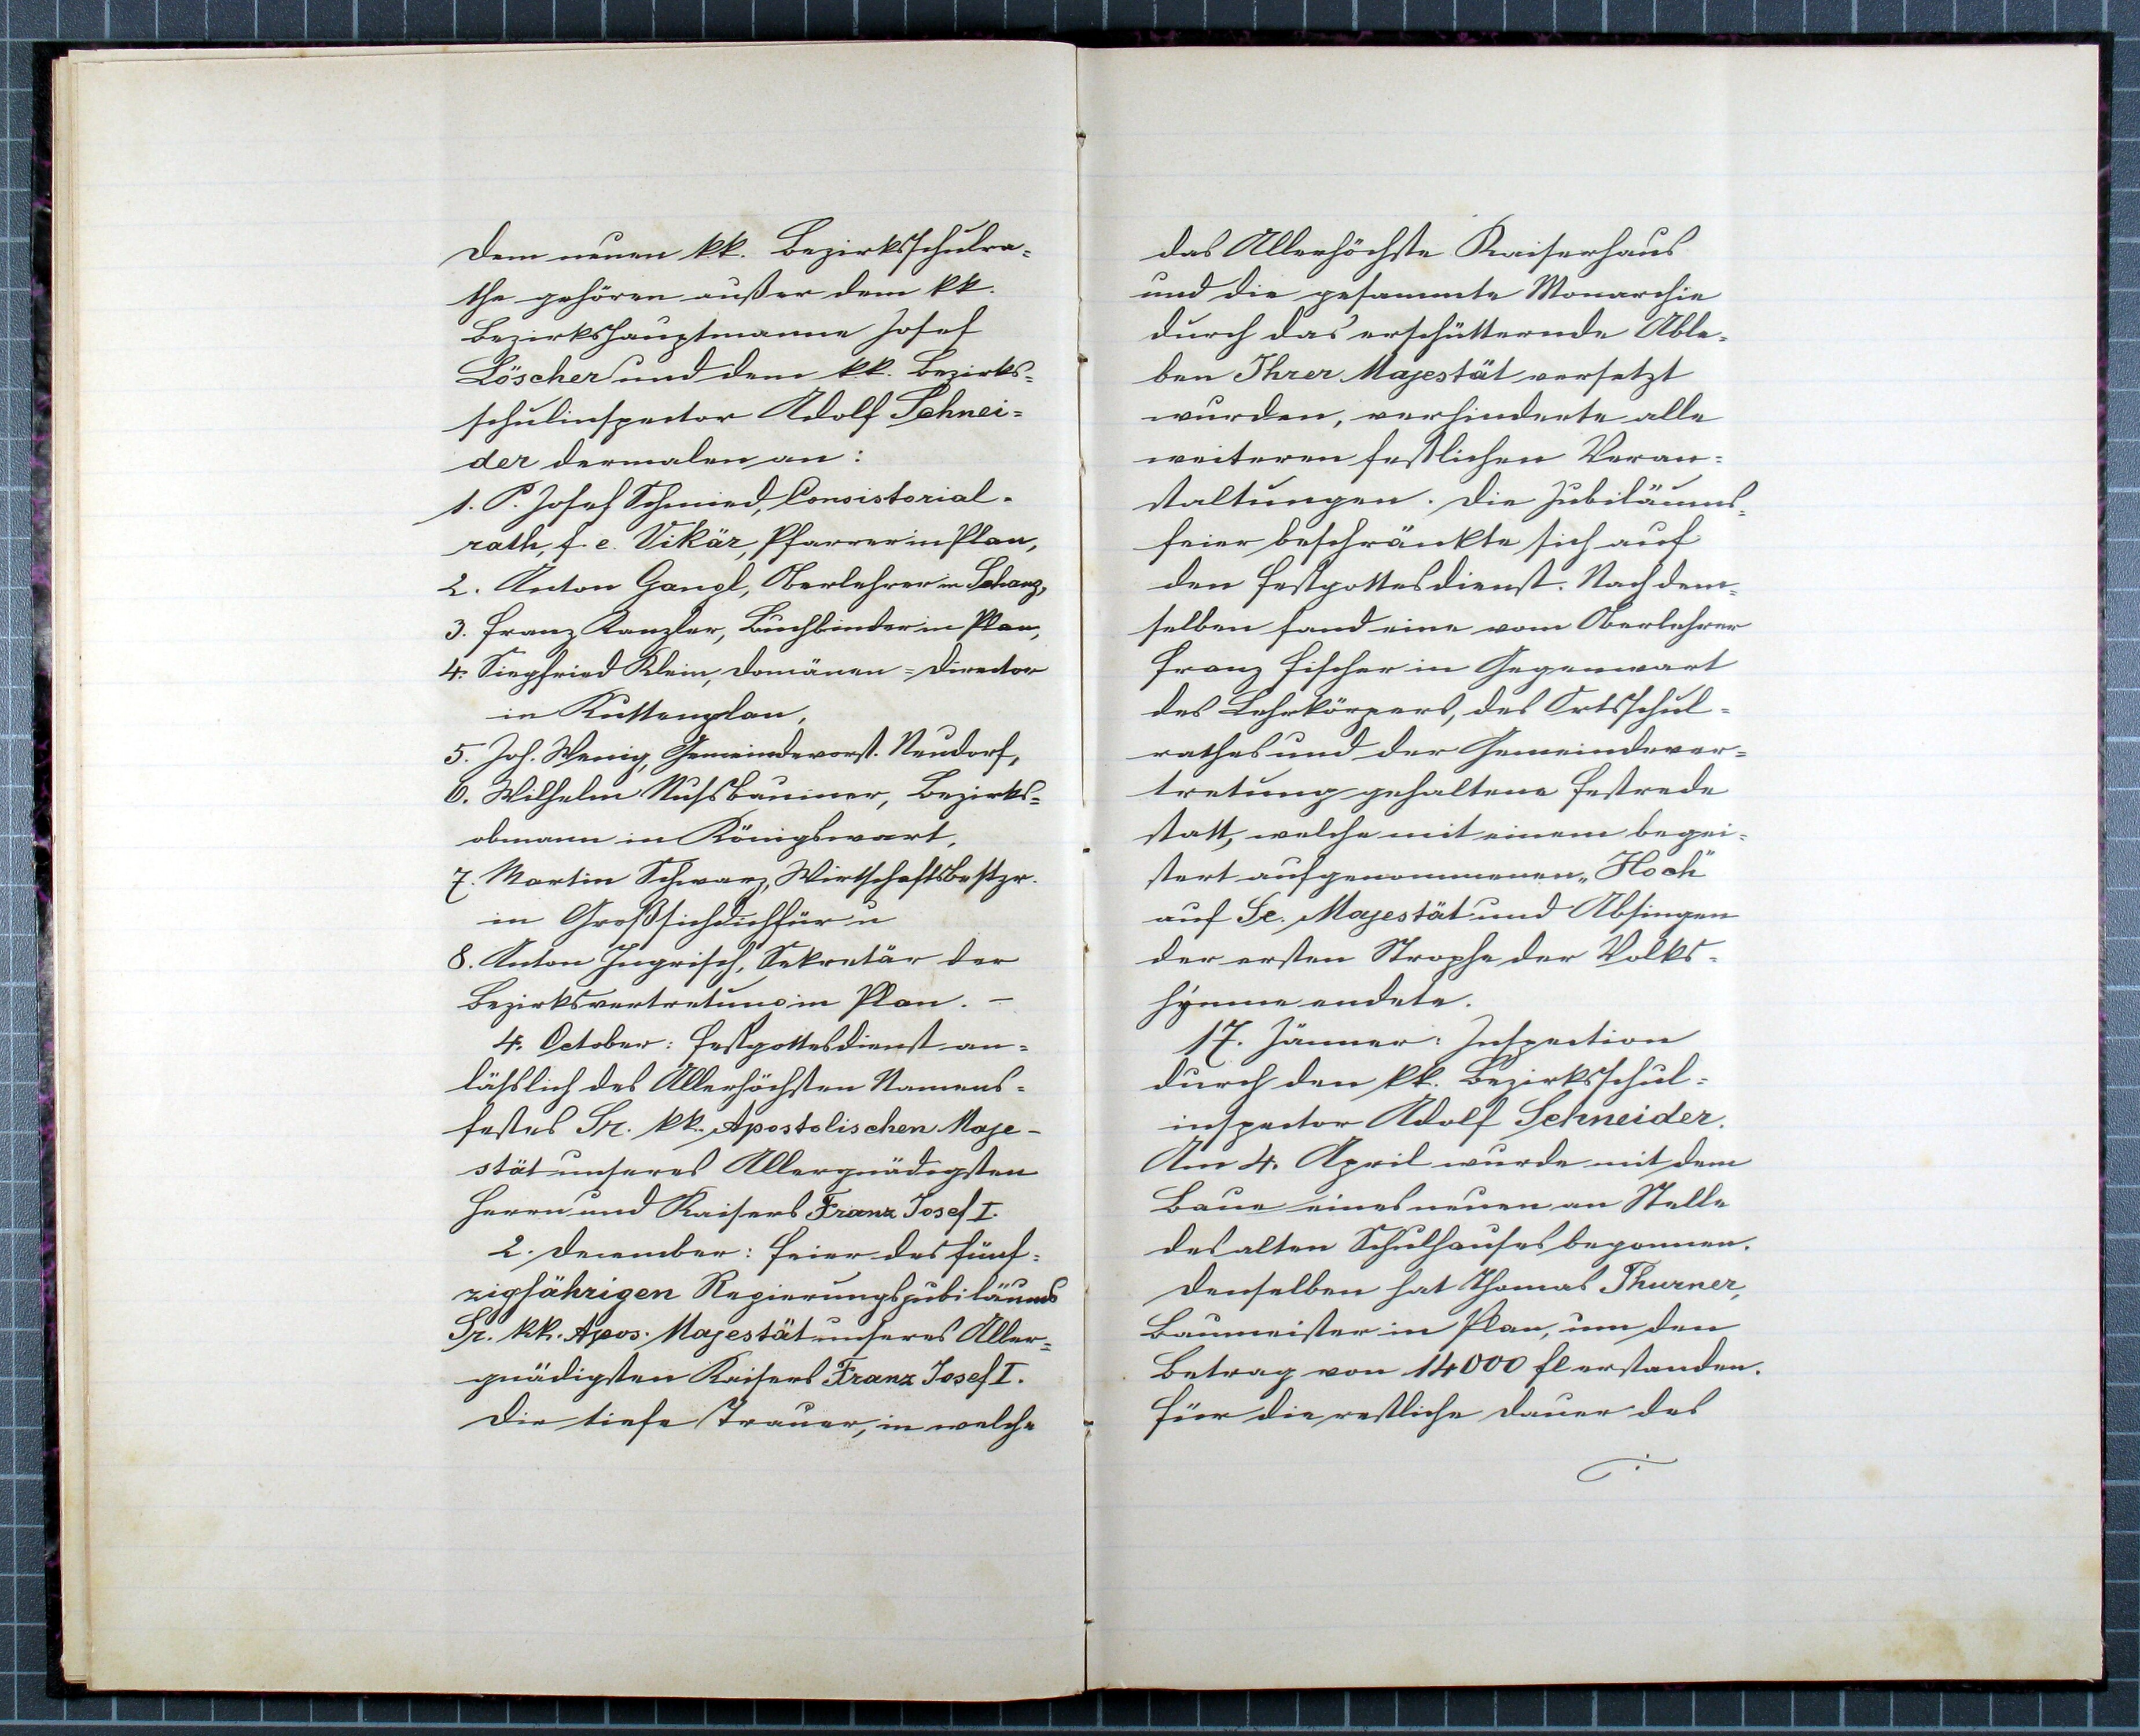 Dem neuen kk. Bezirksschulra=
the gehören außer dem kk.
Bezirkshauptmanne Josef
Löscher und dem kk. Bezirks=
schulinspector Adolf Schnei=
der dermalen an:
1. P. Josef Schmied, Consistorial=
rath, f. e. Vikär, Pfarrer in Plan,
2. Anton Gangl, Oberlehrer in Schanz,
3. Franz Kanzler, Buchbinder in Plan,
4. Siegfried Klein, Domänen=Director
in Kuttenplan,
5. Joh. Wenig, Gemeindevorst. Neudorf,
6. Wilhelm Nußbaumer, Bezirks=
obmann in Königswart,
7. Martin Schwarz, Wirtschaftsbesitzr.
in Großsichdichfür u
8. Anton Ingrisch, Sekretär der
Bezirksvertretung in Plan. –
4. October: Festgottesdienst an=
läßlich des Allerhöchsten Namens=
festes Sr. kk. Apostolischen Maje-
stät unseres Allergnädigsten
Herrn und Kaisers Franz Josef I.
2. December: Feier des fünf=
zigjährigen Regierungsjubiläums
Sr. kk. Apos. Majestät unseres Aller=
gnädigsten Kaisers Franz Josef I.
Die tiefe Trauer, in welche
das Allerhöchste Kaiserhaus
und die gesammte Monarchie
durch das erschütternde Able=
ben Ihrer Majestät versetzt
wurden, verhinderte alle
weiteren festlichen Veran=
staltungen. Die Jubiläums=
feier beschränkte sich auf
den Festgottesdienst. Nach dem=
selben fand eine vom Oberlehrer
Franz Fischer in Gegenwart
des Lehrkörpers, des Ortsschul=
rathes und der Gemeindever=
tretung gehaltene Festrede
statt, welche mit einem begei=
stert aufgenommenen „Hoch"
auf Se. Majestät und Absingen
der ersten Strophe der Volks=
hymne endete.
17. Jänner: Inspection
durch den kk. Bezirksschul=
inspector Adolf Schneider.
Am 4. April wurde mit dem
Baue eines neuen an Stelle
des alten Schulhauses begonnen.
Denselben hat Thomas Thurner,
Baumeister in Plan, um den
Betrag von 14000 fl erstanden.
Für die restliche Dauer des